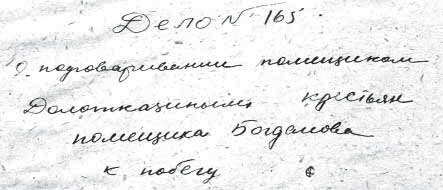 Дело № 165.
О подговаривании помещиком
крестьян
помещика Богданова
к побегу